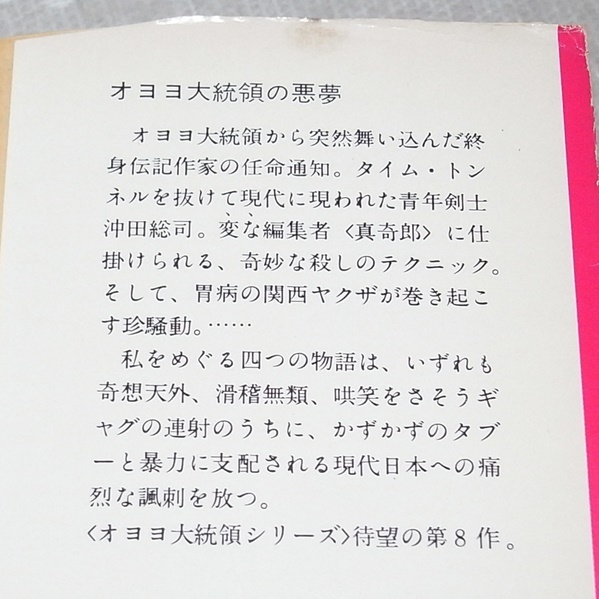 オヨヨ大統領の悪夢
オヨヨ大統領から突然舞い込んだ終
身伝記作家の任命通知。タイム・トン
ネルを抜けて現代に現われた青年剣士
沖田総司。変な編集者〈真奇郎〉に仕
掛けられる、奇妙な殺しのテクニック。
そして、胃病の関西ヤクザが巻き起こ
す珍騒動。……
私をめぐる四つの物語は、いずれも
奇想天外、滑稽無類、哄笑をさそうギ
ャグの連射のうちに、かずかずのタブ
ーと暴力に支配される現代日本への痛
烈な諷刺を放つ。
〈オヨヨ大統領シリーズ〉待望の第8作。